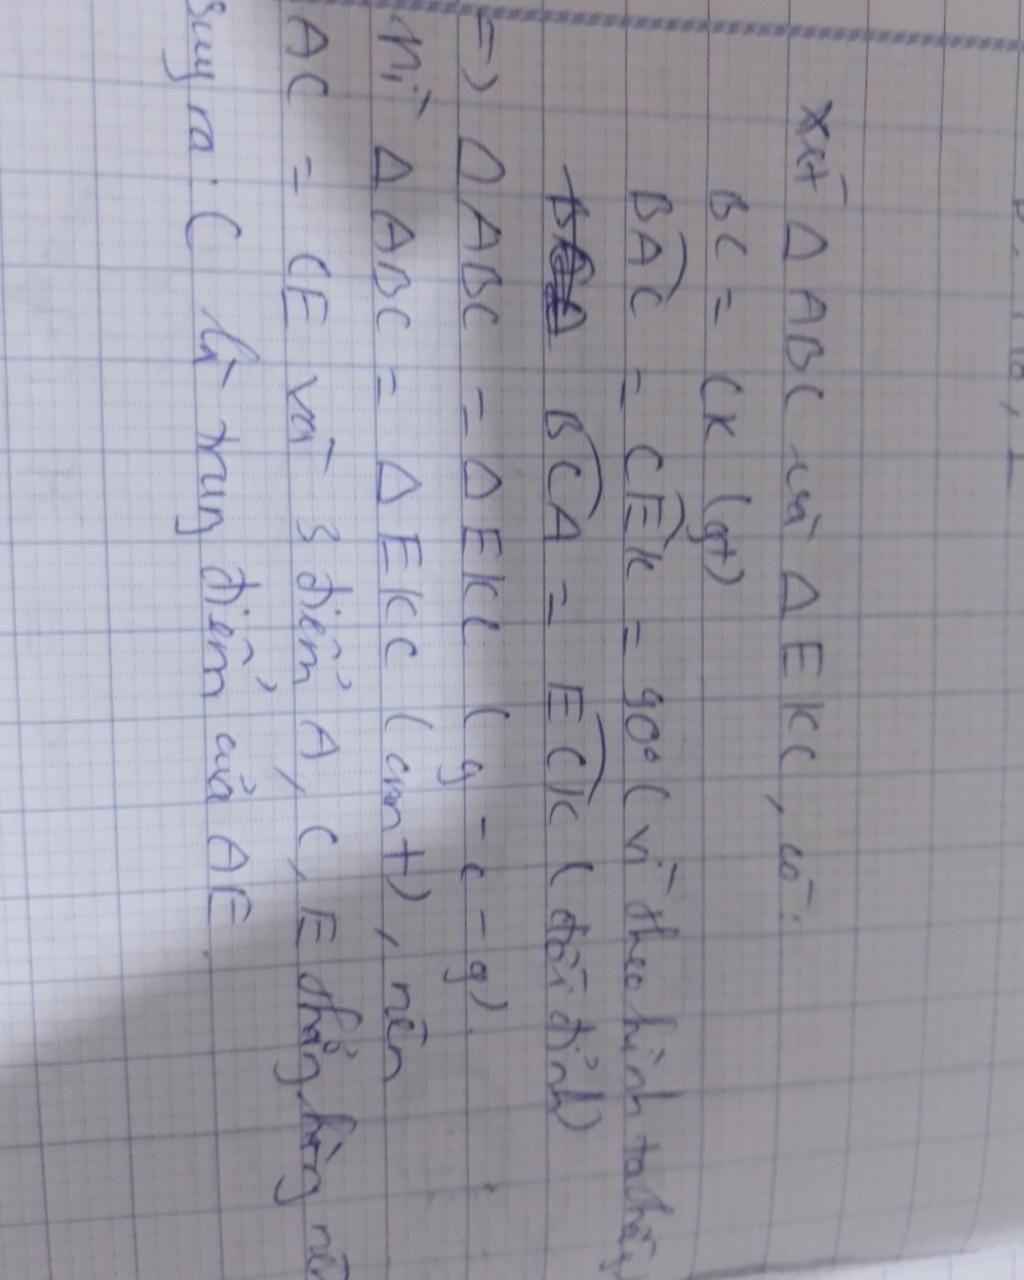 Xét Δ ABC và Δ EKC, có:
BC = CK (gt)
BAC = CEK = 90° (vì theo hình ta thấy
BCA = ECK (đối đỉnh)
=) Δ ABC = Δ EKC (g - c - g).
Vì Δ ABC = Δ EKC (cmt), nên
AC = CE và 3 điểm A, C, E thẳng hàng nê
Suy ra: C là trung điểm của AE.